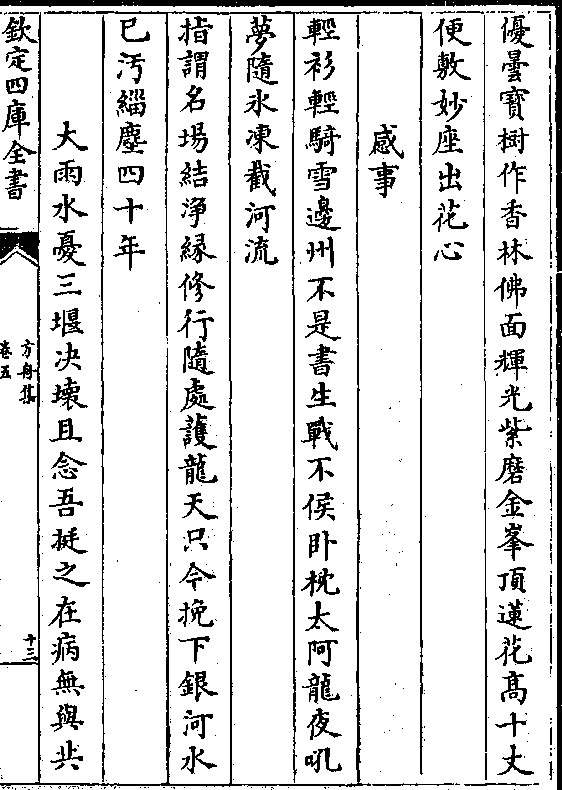 優曇寳樹作香林佛面輝光紫磨金峯頂蓮花髙十丈
便敷妙座出花心
感事
輕衫輕騎雪邊州不是書生戰不侯卧枕太阿龍夜吼
夢隨氷凍截河流
指謂名場結浄縁修行隨處護龍天只今挽下銀河水
已汚緇塵四十年
大雨水憂三堰决壊且念吾挺之在病無與共
欽定四庫全書
方舟集
卷五
十三